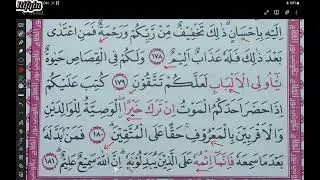 اِلَيْهِ بِاِحْسَانٍ ؕ ذٰلِكَ تَخْفِيْفٌ مِّنْ رَّبِّكُمْ وَرَحْمَةٌ ؕ فَمَنِ اعْتَدٰى
بَعْدَ ذٰلِكَ فَلَهٗ عَذَابٌ اَلِيْمٌ ﴿١٧٨﴾ وَلَكُمْ فِي الْقِصَاصِ حَيٰوةٌ
يّٰۤاُولِي الْاَلْبَابِ لَعَلَّكُمْ تَتَّقُوْنَ ﴿١٧٩﴾ كُتِبَ عَلَيْكُمْ
اِذَا حَضَرَ اَحَدَكُمُ الْمَوْتُ اِنْ تَرَكَ خَيْرًا ۖۚ الْوَصِيَّةُ لِلْوَالِدَيْنِ
وَالْاَقْرَبِيْنَ بِالْمَعْرُوْفِ ۚ حَقًّا عَلَى الْمُتَّقِيْنَ ﴿١٨٠﴾ فَمَنْۢ بَدَّلَهٗ
بَعْدَ مَا سَمِعَهٗ فَاِنَّمَاۤ اِثْمُهٗ عَلَى الَّذِيْنَ يُبَدِّلُوْنَهٗ ؕ اِنَّ اللّٰهَ سَمِيْعٌ عَلِيْمٌ ﴿١٨١﴾